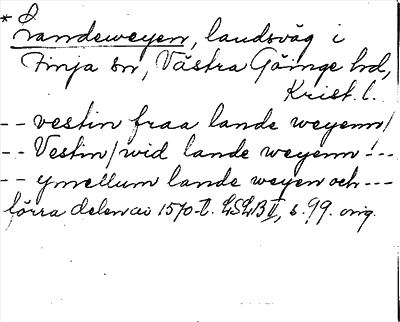 * Landeweyen, landsväg i
Finja sn, Västra Göinge hd,
Krist. l.
-- vestin fraa lande weyenn/
-- Vestin/wid lande weyenn!--
-- ymellum lande weyen och ---
förra delen av 1570-t. LSLB II, s. 99. orig.